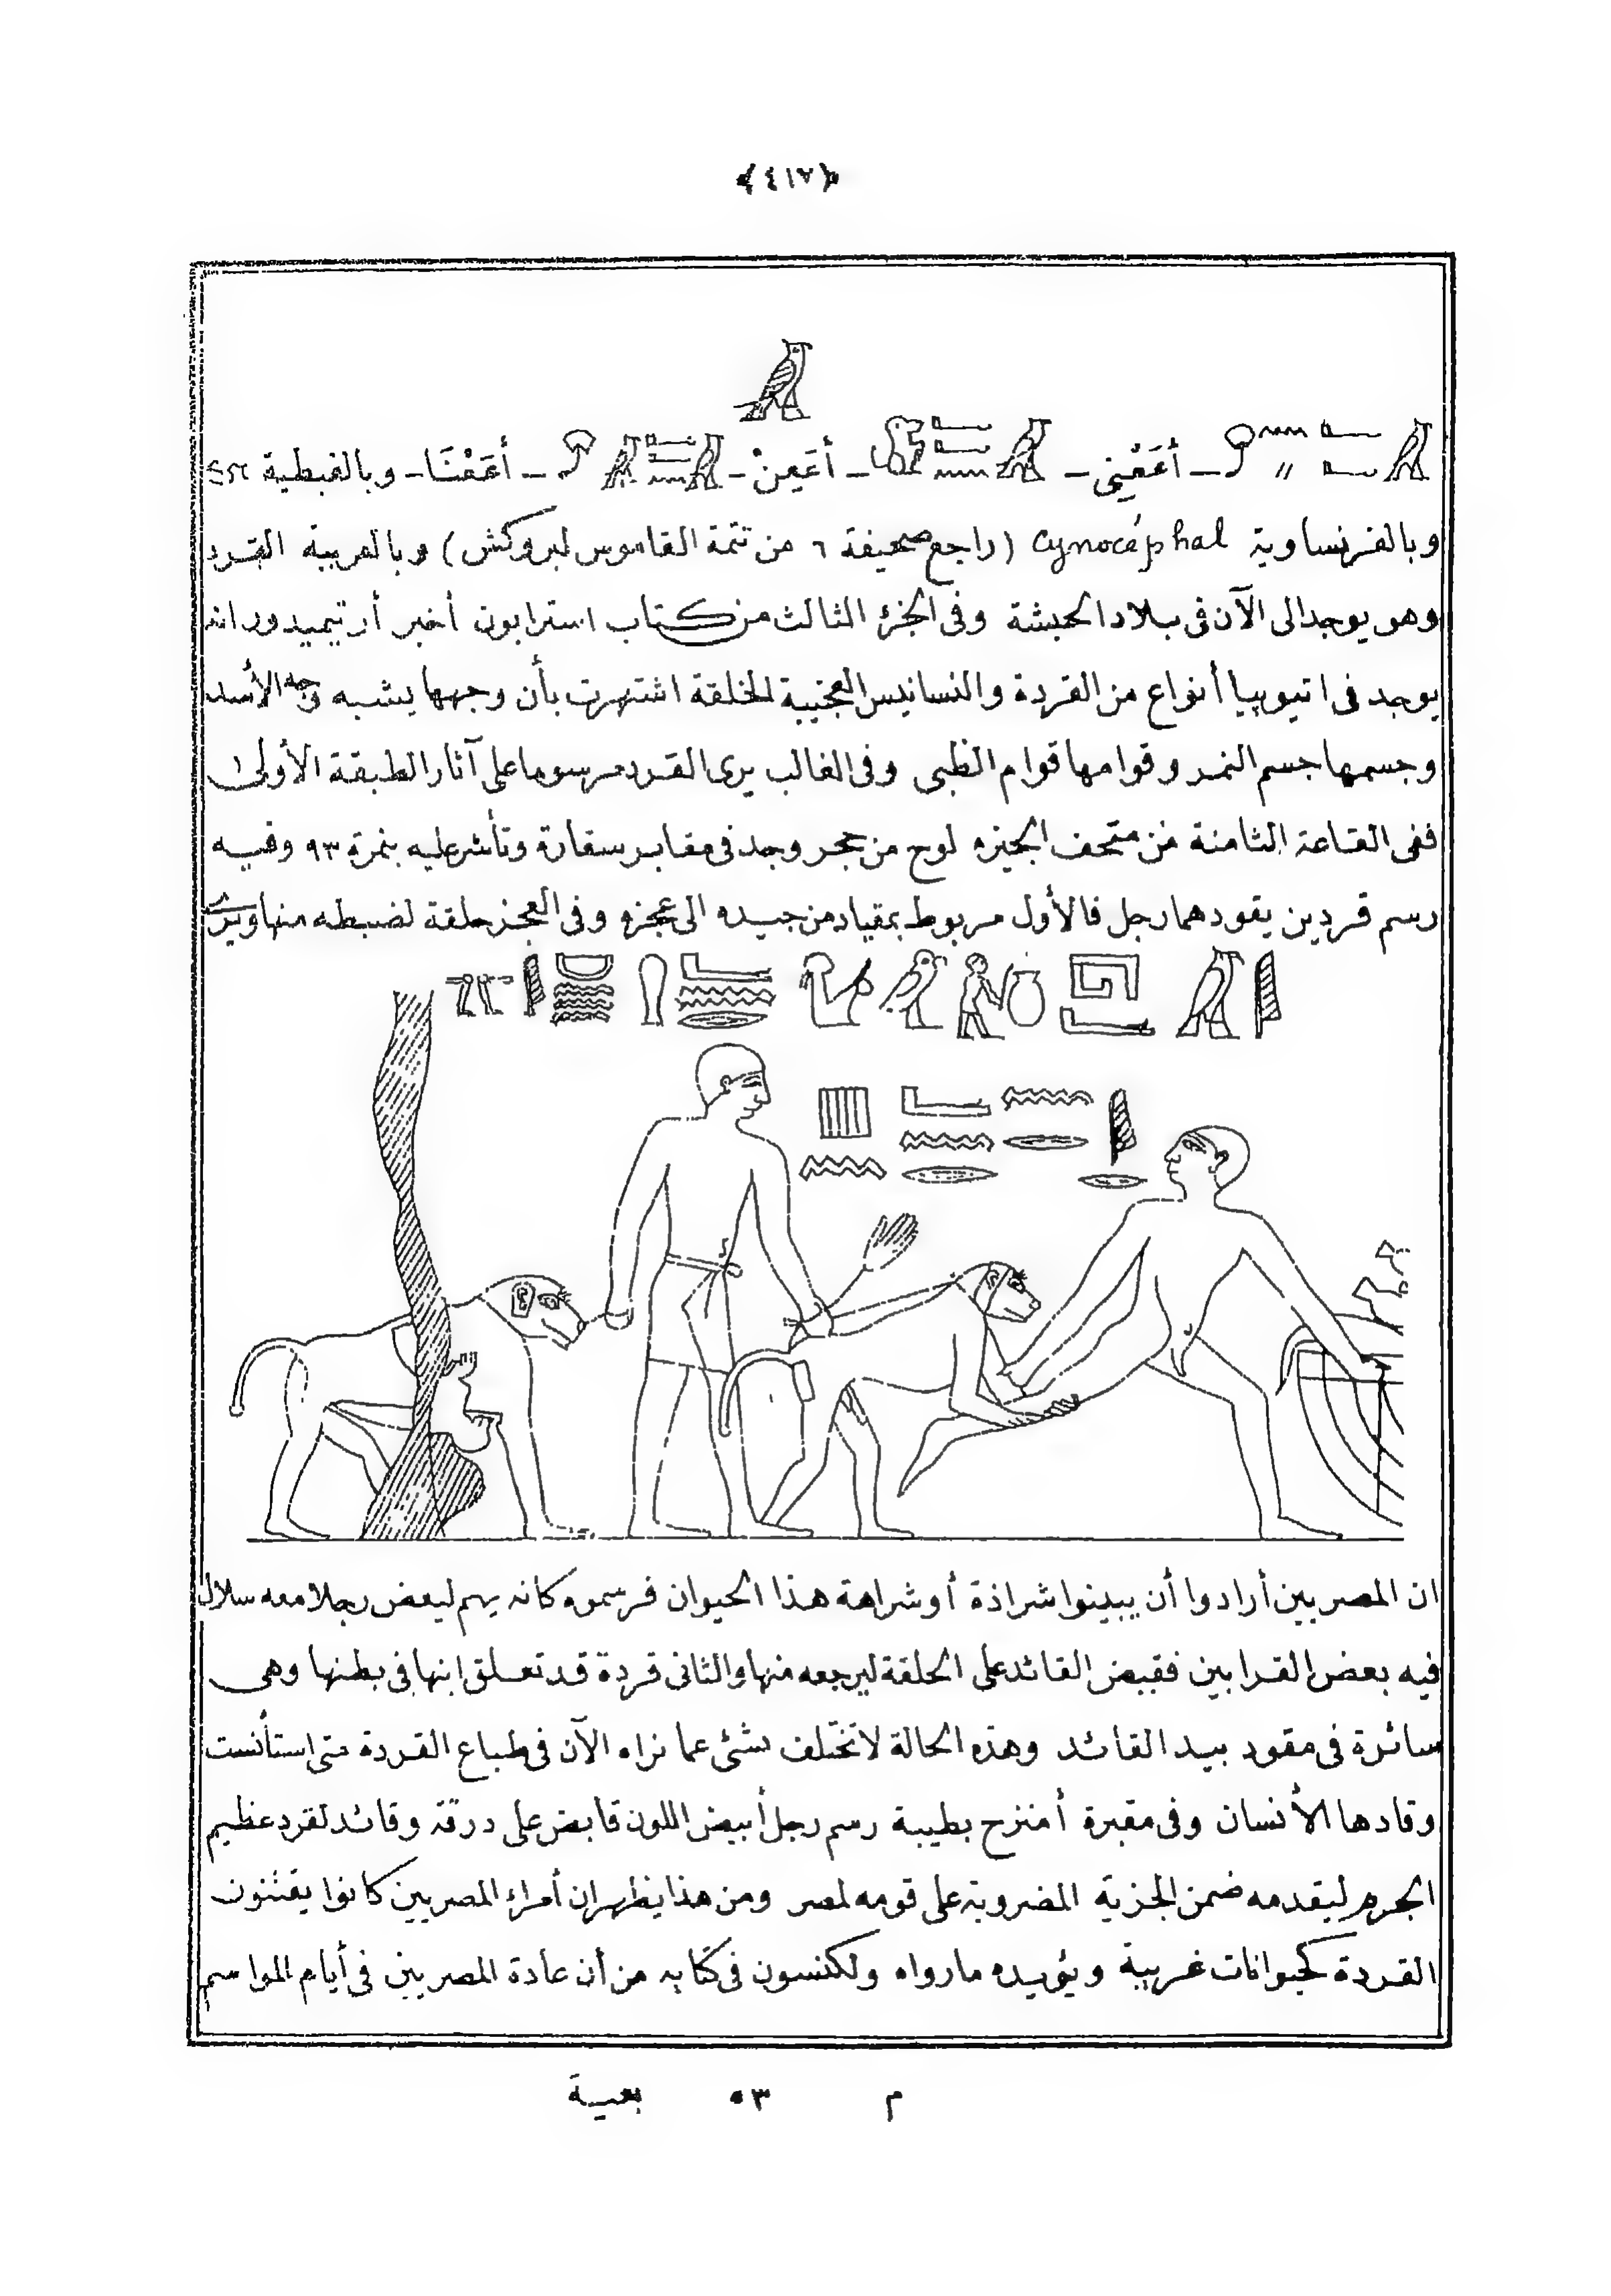 ﴿٤١٧﴾
أَعَعْنِي - أَعَعِنْ - أَعَعْنَا - وبالقبطية ⲉⲛ
وبالفرنساوية Cynocéphal (راجع صحيفة ٦ من تتمة القاموس لبروكش) وبالعربية القرد
وهو يوجد الى الآن فى بلاد الحبشة وفى الجزء الثالث من كتاب استرابون أخبر أرتيميدور انه
يوجد فى اتيوبيا أنواع من القردة والنسانيس العجيبة الخلقة اشتهرت بأن وجهها يشبه وجه الأسد
وجسمها جسم النمر وقوامها قوام الظبى وفى الغالب يرى القرد مرسوما على آثار الطبقة الأولى
ففى القاعة الثامنة من متحف الجيزه لوح من حجر وجد فى مقابر سقارة وتأشر عليه بنمرة ٩٣ وفيه
رسم قردين يقودهما رجل فالأول مربوط بمقياد من جيده الى عجزه وفى العجز حلقة لضبطه منها ويرى
ان المصريين أرادوا أن يبينوا شراذة أو شراهة هذا الحيوان فرسموه كانه يهم ليعض رجلا معه سلال
فيه بعض القرابين فقبض القائد على الحلقة ليرجعه منها والثانى قردة قد تعلق ابنها فى بطنها وهى
سائرة فى مقود بيد القائد وهذه الحالة لا تختلف بشئ عما نراه الآن فى طباع القردة متى استأنست
وقادها الأنسان وفى مقبرة أمنزح بطيبة رسم رجل أبيض اللون قابض على درقة وقائد لقرد عظيم
الجرم ليقدمه ضمن الجزية المضروبة على قومه لمصر ومن هذا يظهر ان أمراء المصريين كانوا يقتنون
القردة كحيوانات غريبة ويؤيده ما رواه ولكنسون فى كتابه من أن عادة المصريين فى أيام المواسم
م ٥٣ بعية